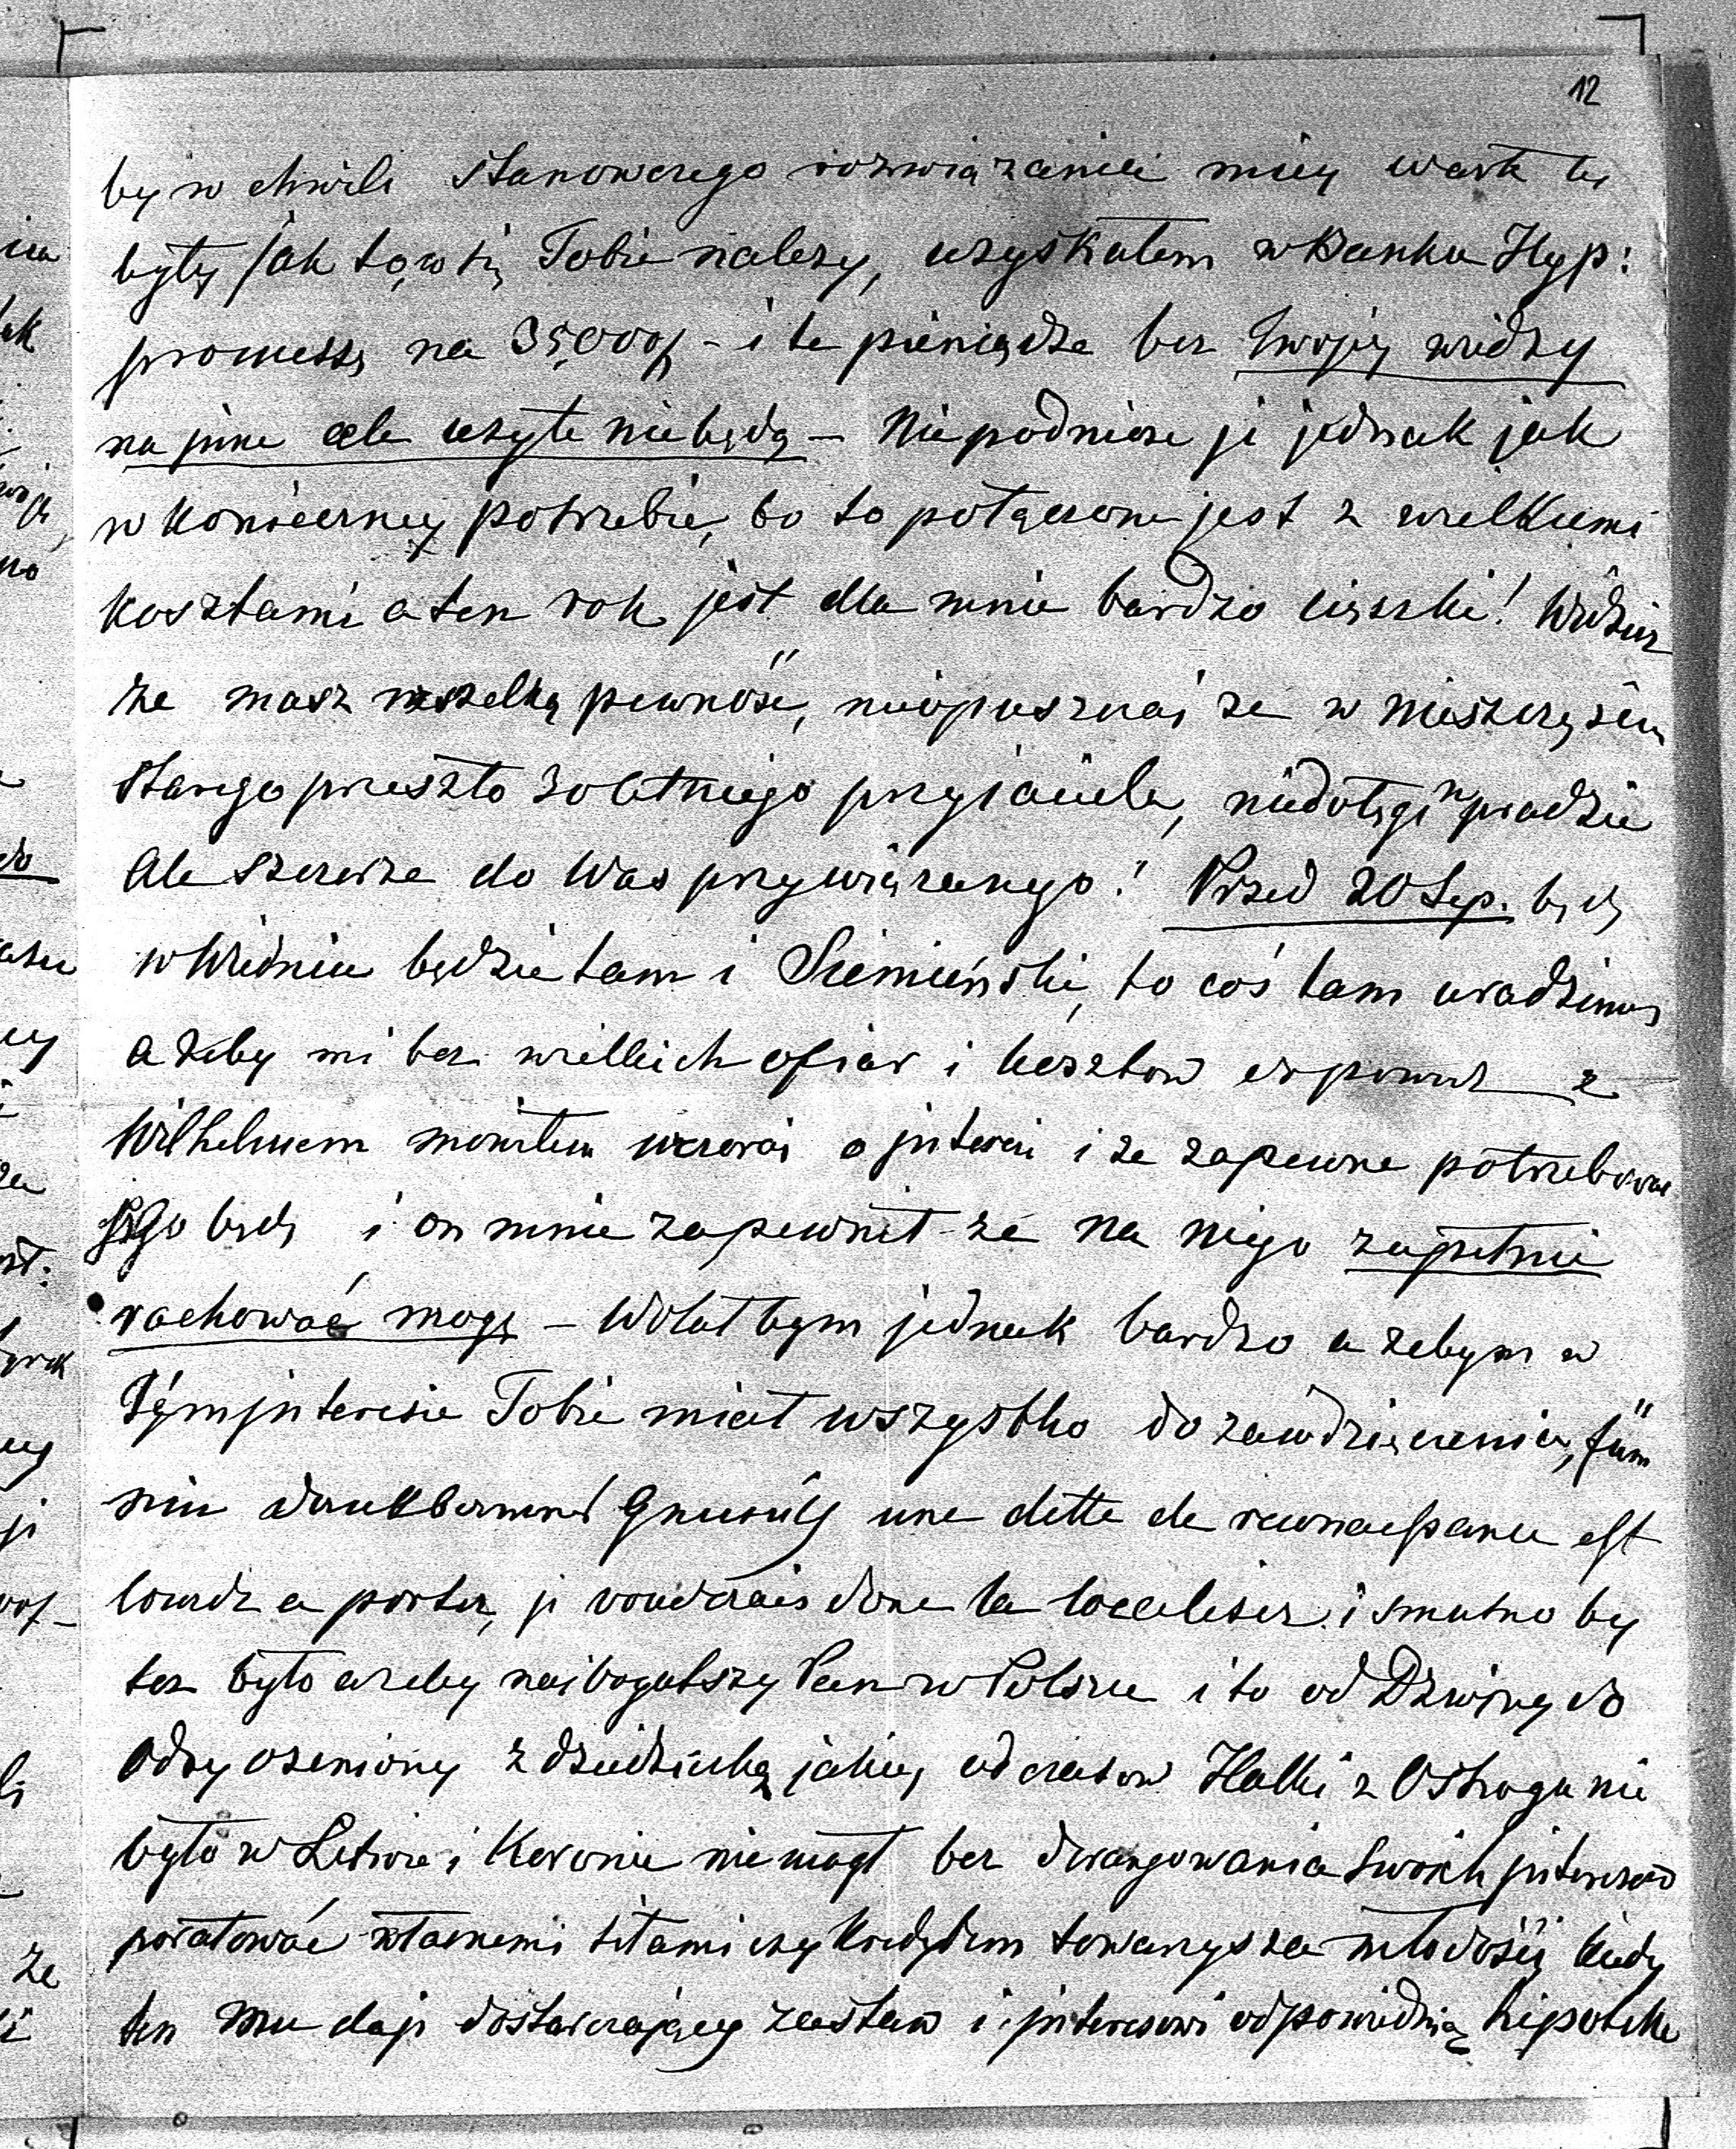 12
by w chwili stanowczego rozwiązania miey wart
byty jak Tobie należy, uzyskałem w Banku Hyp:
promessę na 35,000f – i te pieniądze bez Twojéj wiedzy
na jnne cele użyte niebędą – Niepodniosę ji jednak jak
w koniecznéj potrzebie, bo to połączone jest z wielkiemi
kosztami a ten rok jest dla mnie bardzo ciężki! Widzisz
że masz wszelką pewność, nieopuszczaj że w nieszczęściu
starego przeszło 30 letniego przyjaciela, niedołęgi wpradzie
ale szczerze do Was przywiązanego! Przed 20 Sep. będę
w Wiedniu będzie tam i Siemieński, to coś tam uradzimy
a żeby mi bez wielkich ofiar i kosztow z
Wilhelmem mowiłem wczoraj o jnteresie i że zapewne potrzebować
jego będę i on mnie zapewnił że na niego zupełnie
rachować mogę – Wolał bym jednak bardzo a żebym w
tym jnteresie Tobie miał wszystko do zawdzięczenia, für
une dette de reconnaissance est
lourde a porter, je voudrais donc la localiser. i smutno by
też było ażeby najbogatszy Pan w Polsce i to od Dzwiny do
Odry ożeniony z dziedziczką jakiéj od czasow Halki z Ostroga nie
było w Litwie i Koronie niemogł bez derangowania swoich jnteresow
poratować własnemi siłami czy kredytem towarzysza młodości kiedy
ten mu daje dostarczający zastaw i jnteresowi odpowiednią hipotekę